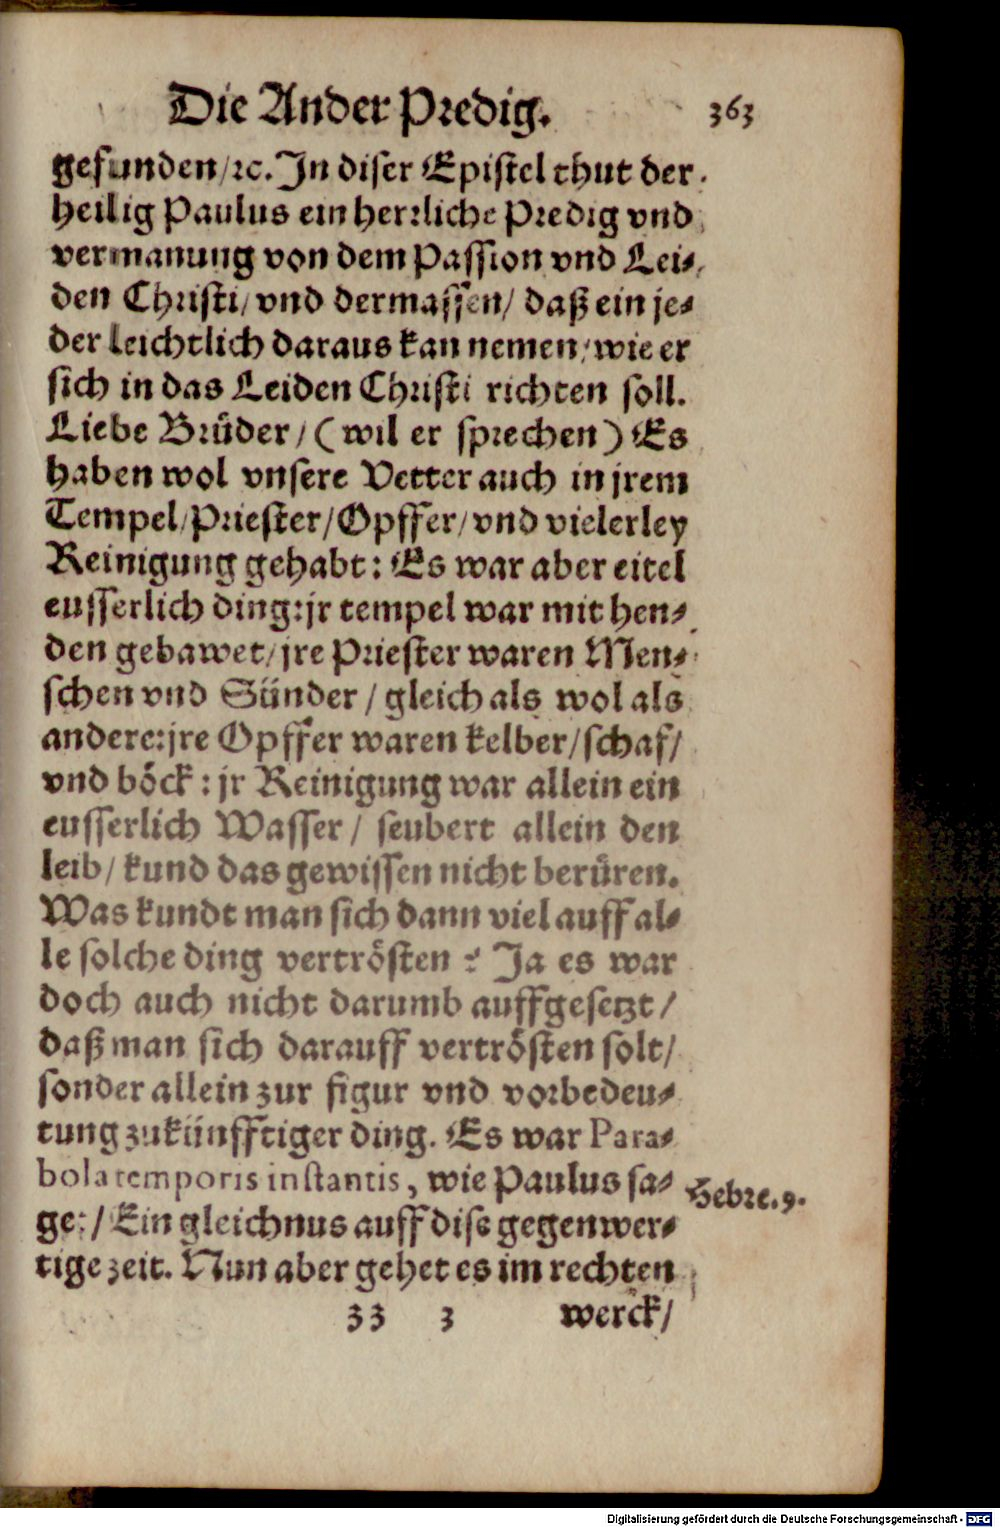 Die Ander Predig. 363
gefunden/ꝛc. In diser Epistel thut der
heilig Paulus ein herꝛliche Predig vnd
vermanung von dem Passion vnd Lei-
den Christi/ vnd dermassen/ daß ein je-
der leichtlich daraus kan nemen/ wie er
sich in das Leiden Christi richten soll.
Liebe Bruͤder/ (wil er sprechen) Es
haben wol vnsere Vetter auch in jrem
Tempel/ Priester/ Opffer/ vnd vielerley
Reinigung gehabt: Es war aber eitel
eusserlich ding: jr tempel war mit hen-
den gebawet/ jre Priester waren Men-
schen vnd Sünder/ gleich als wol als
andere: jre Opffer waren kelber/ schaf/
vnd böck: jr Reinigung war allein ein
eusserlich Wasser/ seubert allein den
leib/ kund das gewissen nicht beruͤren.
Was kundt man sich dann viel auff al-
le solche ding vertrösten? Ja es war
doch auch nicht darumb auffgesetzt/
daß man sich darauff vertrösten solt/
sonder allein zur figur vnd vorbedeu-
tung zukünfftiger ding. Es war Para-
bola temporis instantis, wie Paulus sa-
get/ Ein gleichnus auff dise gegenwer-
tige zeit. Nun aber gehet es im rechten
Hebre. 9.
Zz 3 werck/
Digitalisierung gefördert durch die Deutsche Forschungsgemeinschaft - DFG